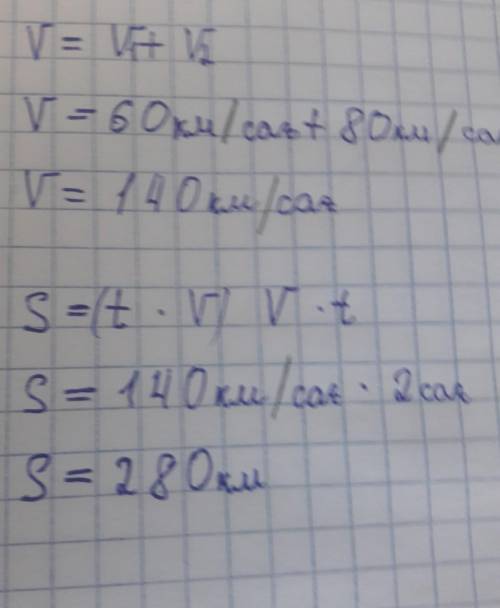 V = V1 + V2
V = 60км/сағ + 80км/са
V = 140км/сағ
S = (t · V) V · t
S = 140км/сағ · 2сағ
S = 280км